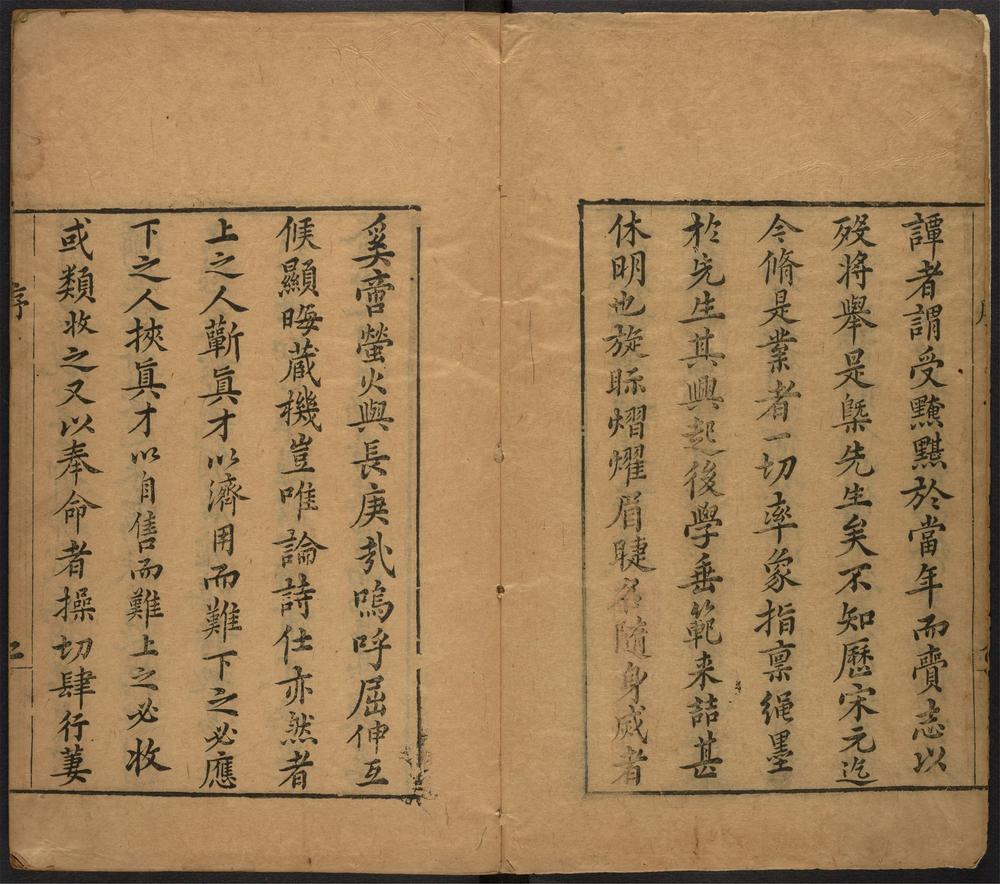 譚者謂受黥黮於當年而賷志以
歿將舉是槩先生矣不知歷宋元迄
今脩是業者一切率象指禀繩墨
於先生其興起後學垂範来喆甚
休明也旋眎熠燿眉睫名隨身烕者
奚啻螢火與長庚㢤嗚呼屈伸互
候顯晦蔵機豈唯論詩仕亦然者
上之人蘄真才以濟用而難下之必應
下之人挾真才以自售而難上之必收
或類收之又以奉命者操切肆行萋
序
二